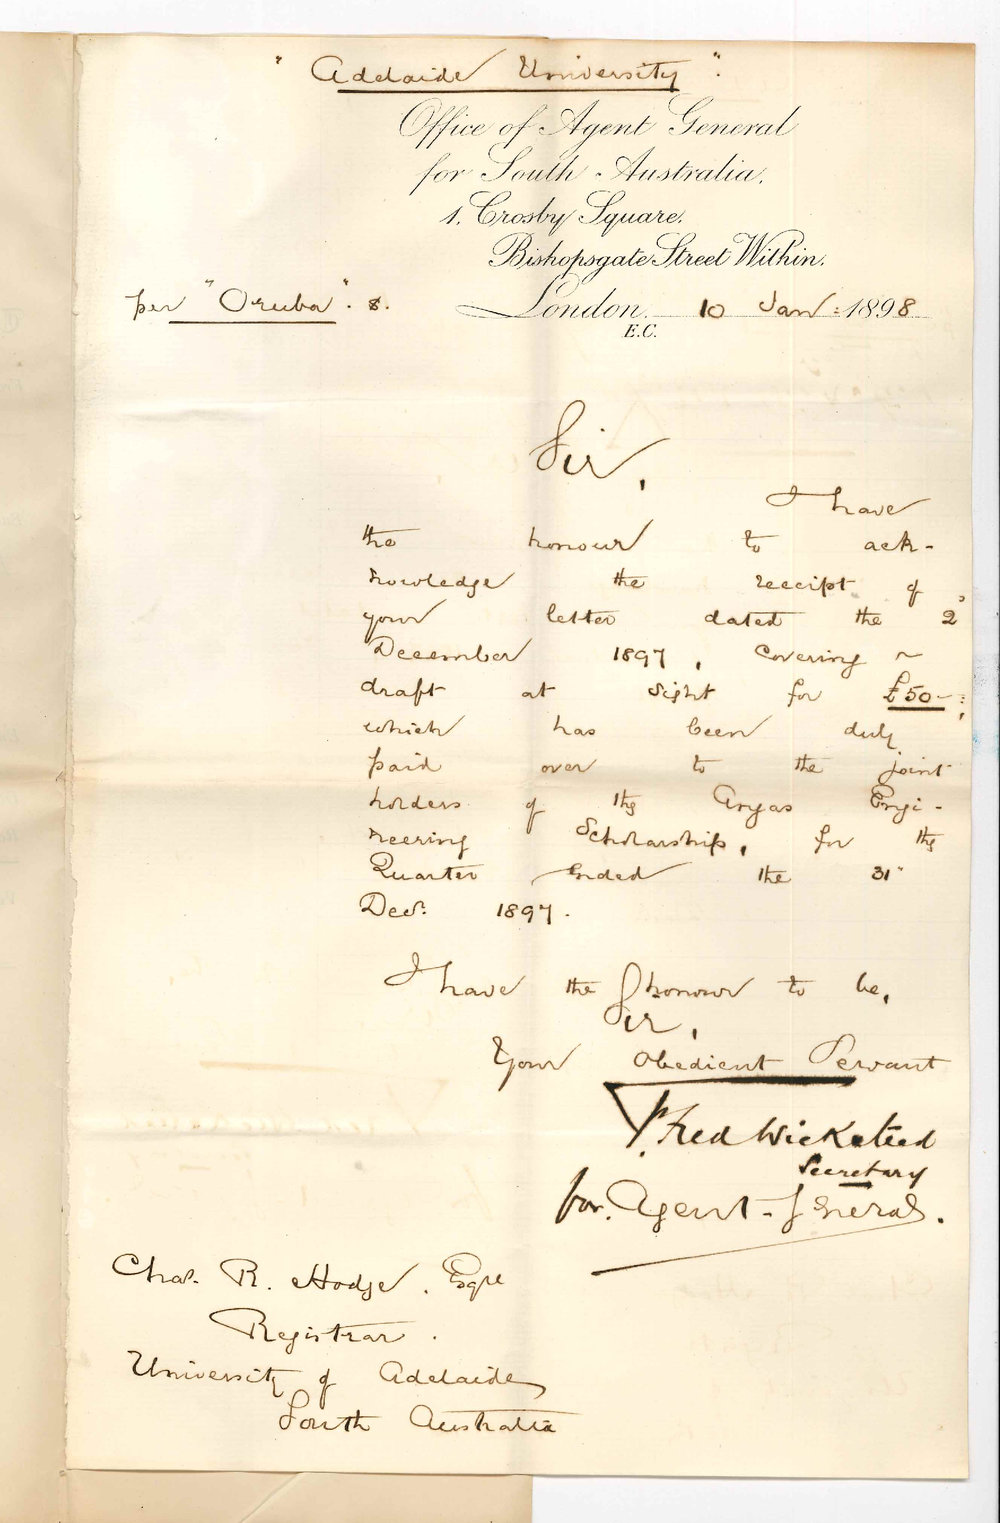 " Adelaide University ".
Office of Agent General
for South Australia.
1, Crosby Square.
Bishopsgate Street Within.
per "Oruba". s.
London. 10 Jan: 1898
E.C.
Sir,
I have
the honour to ack-
nowledge the receipt of
your letter dated the 2"
December 1897, covering ~
draft at sight for £50-:,
which has been duly
paid over to the joint
holders of the Angas Engi-
neering Scholarship, for the
Quarter ended the 31"
Decr. 1897.
I have the honour to be,
Sir,
Your Obedient Servant
J. Fred Wicksteed
Secretary
for. Agent-General.
Chas. R. Hodge. Esqre
Registrar.
University of Adelaide
South Australia